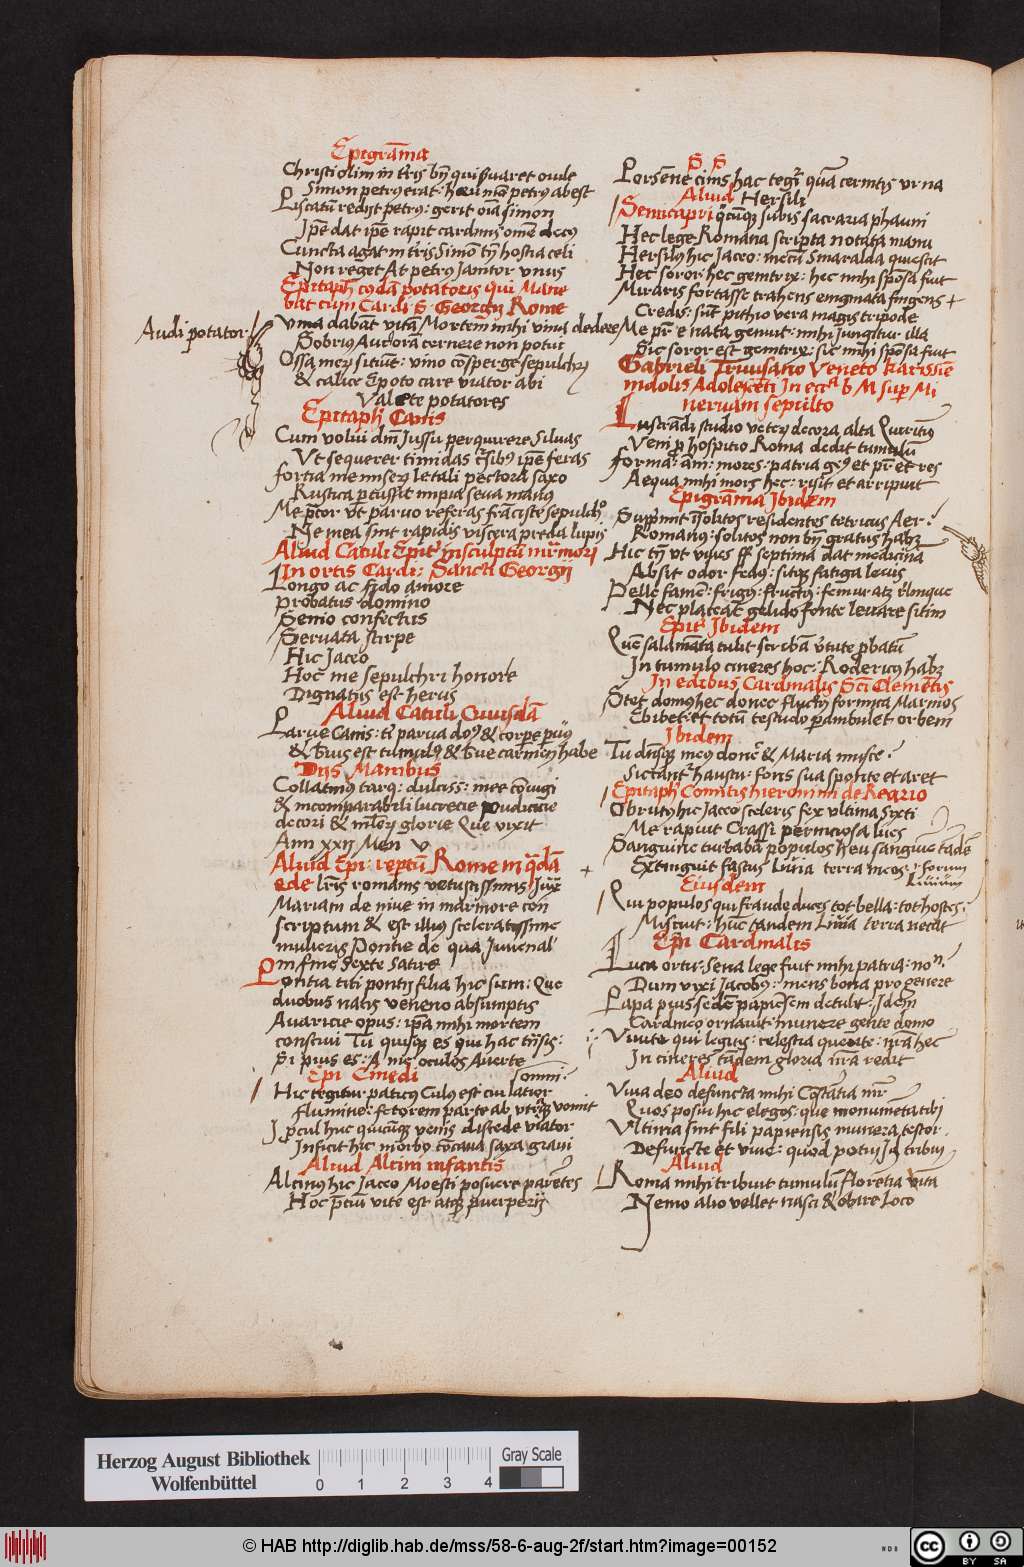 Epigra̅ma
Christi olim in tr̅is bn̅ qui servaret ovile
Simon petrus erat: heu nu̅c petrus abest
Piscatum redijt petrus: gerit o̅ia simon
Ip̅e dat ip̅e rapit cardinis om̅e decus
Cuncta agat in tr̅is Simo̅ tn̅ hostia celi
Non reget At petrus Janitor unus
Epitaph cuiusda̅ potatoris qui Mane
bat cum Cardi S Georgij Rome
Audi potator
Vina daba̅t vita̅ Mortem mihi vina dedere
Sobrius Aurora̅ cernere non potui
Ossa merum sitiu̅t: vino co̅sperge sepulchrum
& calice Epoto care viator abi
Valete potatores
Epitaph Canis
Cum volui dn̅i Jussu perquirere Silvas
Ut sequerer timidas ip̅e feras
fortia me miserum letali pectora saxo
Rustica p̅cussit impia seva manus
Me p̅cor ut parvo referas francisce sepulchro
Ne mea sint rapidis viscera preda lupis
Aliud Catuli Epit insculptu̅ m̅rmori
In ortis Cardi: Sancti Georgij
Longo ac fido amore
probatus domino
Senio confectus
Servata stirpe
Hic Jaceo
Hoc me sepulchri honore
Dignatus est herus
Aliud Catuli Cuiusda̅
Parve Canis: tr̅ parva domus & corpe pu̅us
& brevis est tumulus & breve carmen habe
Dijs Manibus
Collatinus tarq: dulciss: mee co̅iugi
& incomparabili lucrecie pudicicie
decori & mulierum glorie Que vixit
Ann xxij Men v
Aliud Epi: reptu̅ Rome in q̅da̅
ede lr̅is romanis vetustissimis Jux
Mariam de nive in marmore con
scriptum & est illius sceleratissime
mulieris Pontie de qua Juvenal
in fine Sexte Satire
Pontia titi pontij filia hic sum: Que
duobus natis veneno absumptis
Avaricie opus: ip̅a mihi mortem
conscivi Tu quisque es qui hac tra̅sis:
Si pius es: A me oculos Averte
Epi Cinedi
Hic tegitur paticus Culus est cui latior omni:
flumine: fetorem parte ab vomit
procul huc quicu̅que venis discede viator
Inficit hic morbus co̅cava saxa gravi
Aliud Alcini infantis
Alcinus hic Jaceo Moesti posuere parentes
Hoc p̅ciu̅ vite est atque puerperij
S S
Porsene cinis hac tegr̅ qua̅ cernitis urna
Aliud Hersili
Semicapri quicu̅que subis sacraria phauni
Hec lege Romana scripta notata manu
Hersilus hic Jaceo: mecu̅ Smaralda quiescit
Hec soror hec genitrix: hec mihi sponsa fuit
Miraris fortasse trahens enigmata fingens +
Credis: su̅t pithio vera magis tripode
Me pr̅ e nata genuit: mihi Jungitur illa
Sic soror est genitrix: sic mihi sponsa fuit
Gabrieli Trivisano Veneto karissime
indolis Adolesce̅ti In eccl̅a b M sup̅ Mi
nervam sepulto
Lustra̅di studio veterum decora alta Quiritiu̅
Veni p̅ hospitio Roma dedit tumulu̅
forma: a̅i̅: mores: patria genus et pr̅ et res
Aequa mihi mors hec: risit et arripuit
Epigra̅ma Ibidem
Supprimit i̅solitos residentes tetricus Aer:
Romanus: solitos non bn̅ gratus habet
Hic tn̅ ut vivas septima dat medicina
Absit odor fedus: sitque fatiga levis
Pelle fame̅: frigus: fructus: femur atque relinque
Nec placeat gelido fonte levare sitim
Epit Ibidem
Que̅ salama̅ta tulit scriba̅ v̅tute p̅batu̅
In tumulo cineres hoc: Rodericus habet
In edibus Cardinalis Sc̅i Cleme̅tis
Stet domus hec donec fluctus formica Marinos
Ebibet: et totu̅ testudo p̅ambulet orbem
Ibidem
Tu meus & Maria
Siccantur haustu: fons sua sponte et aret
Epitaph Comitis hieronimi de Reario
Obrutus hic Jaceo sceleris fex ultima Sixti
Me rapuit Crassi perniciosa lues
Sanguine turbaba̅ populos heu sanguine tade̅
Extinguit fastus Livia terra meos : forum Liviu̅
Eiusdem
Qui populos qui fraude duces tot bella: tot hostes:
Miscuit: hu̅c tandem Livia terra necat
Epi Cardinalis
Luca ortus: Sena lege fuit mihi patria: no̅n:
Dum vixi Jacobus: mens bona pro genere
Papa pius sede̅ papiense̅ detulit: Idem
Cardineo ornavit: munere gente domo
Vivite qui legitis: celestia querite: nr̅a hec
In cineres ta̅dem gloria nr̅a redit
Aliud
Viva deo defuncta mihi Co̅sta̅tia mr̅
Quos posui hic elegos: que monumeta tibi
Ultima sint fili papiensis munera testor
Defuncte et vive: quod potui Ja̅ tribui
Aliud
Roma mihi tribuit tumulu̅ florentia vita̅
Nemo alio vellet nasci & obire Loco
Herzog August Bibliothek
Wolfenbüttel
0 1 2 3 4
Gray Scale
© HAB http://diglib.hab.de/mss/58-6-aug-2f/start.htm?image=00152
cc BY SA